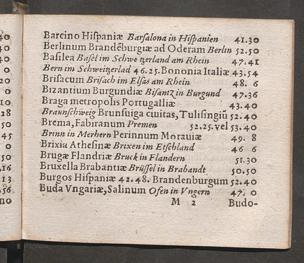 Barcino Hispaniæ Barsalona in Hispanien 41.30
Berlinum Brandēburgiæ ad Oderam Berlin 52.50
Basilea Basel im Schweitzerland am Rhein 47.41
Bern im Schweitzerlad 46.25. Bononia Italiæ 43.54
Brisacum Brisach im Elsas am Rhein 48. 6
Bizantium Burgundiæ Bisantz in Burgund 47.36
Braga metropolis Portugalliæ 43.40
Braunschweig Brunsuiga cuitas, Tulisurgiū 52.40
Brema, Fabiranum Premen 52.25. vel 53.40
Brinn in Merhern Perinnum Morauiæ 49. 8
Brixiu Athesinæ Brixen im Etschland 46. 6
Brugæ Flandriæ Bruck in Flandern 51.30
Bruxella Brabantiæ Brüssel in Brabandt 50.50
Burgos Hispaniæ 42.48. Brandenburgum 52.40
Buda Vngariæ, Salinum Ofen in Vngern 47. 0
M 2 Budo-